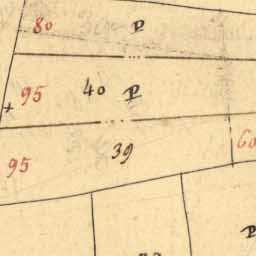 80 P
95 40 P
39 60
95
P